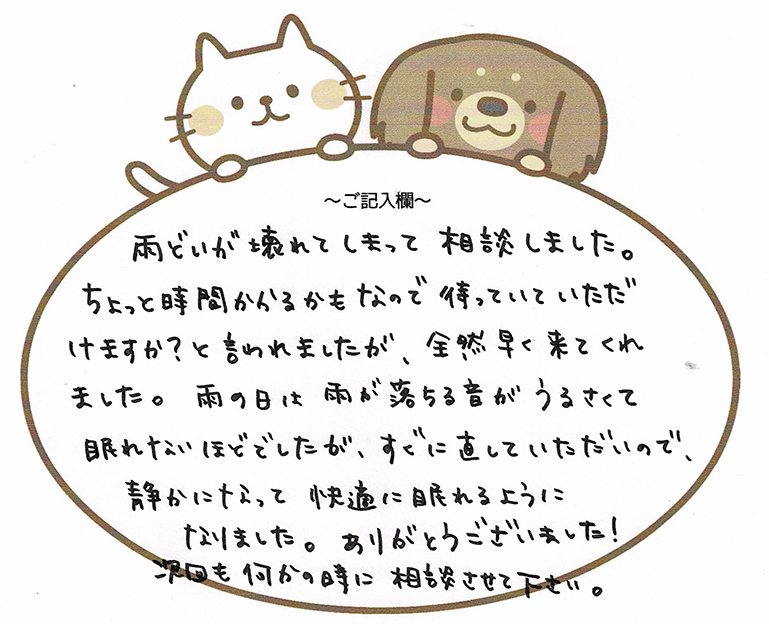 ～ご記入欄～
雨どいが壊れてしまって相談しました。
ちょっと時間かかるかもなので待っていていただ
けますか?と言われましたが、全然早く来てくれ
ました。雨の日は雨が落ちる音がうるさくて
眠れないほどでしたが、すぐに直していただいので、
静かになって快適に眠れるように
なりました。ありがとうございました!
次回も何かの時に相談させて下さい。